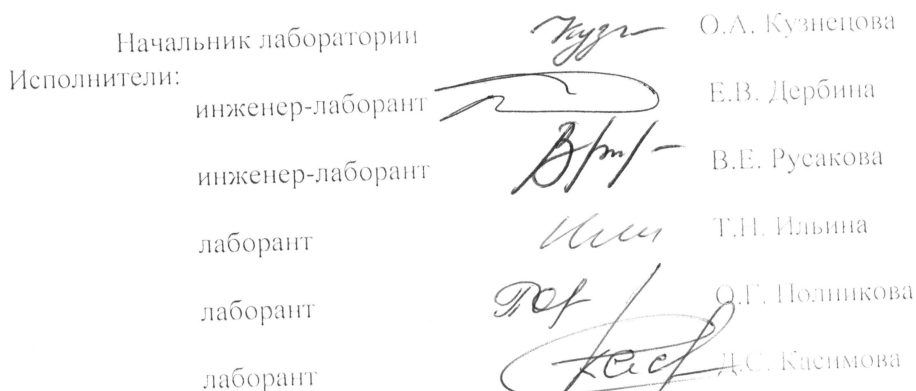 Начальник лаборатории О.А. Кузнецова
Исполнители:
инженер-лаборант Е.В. Дербина
инженер-лаборант В.Е. Русакова
лаборант Т.Н. Ильина
лаборант О.Г. Полникова
лаборант Д.С. Касимова